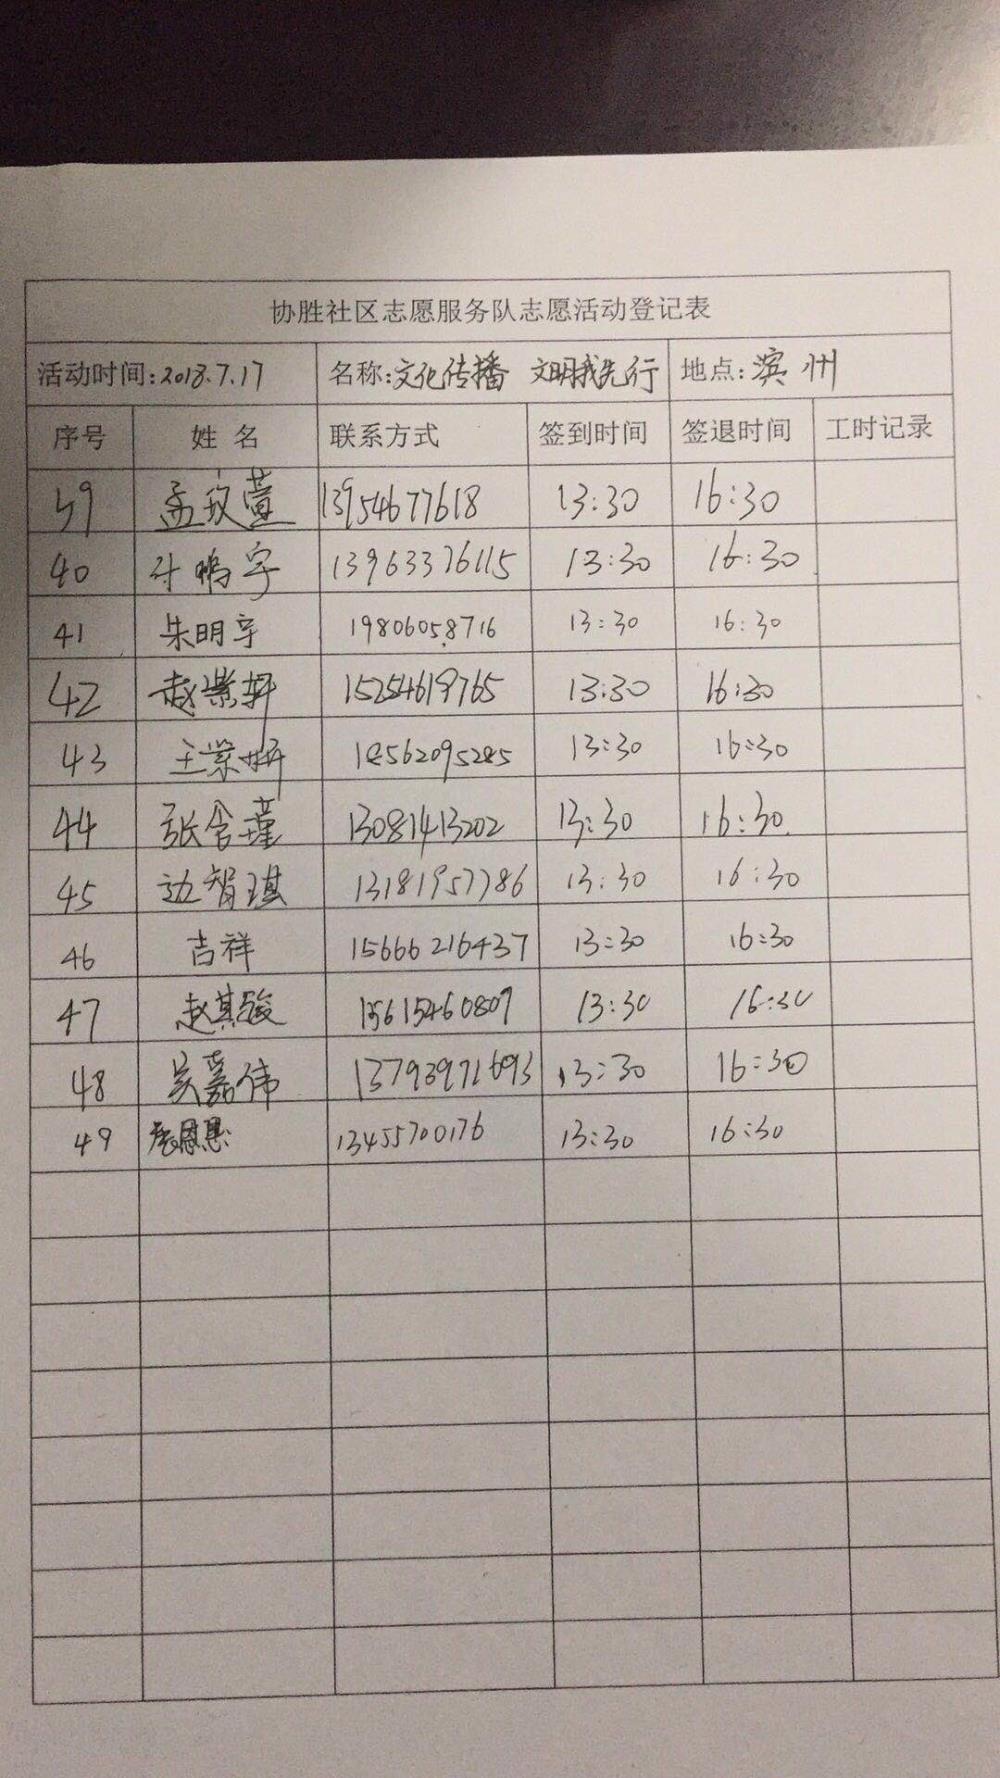 协胜社区志愿服务队志愿活动登记表
活动时间:2018.7.17 名称:文化传播 文明我先行 地点:滨州
序号 姓名 联系方式 签到时间 签退时间 工时记录
39 孟玟萱 13954677618 13:30 16:30
40 鸣宇 13963376115 13:30 16:30
41 朱明宇 19806058716 13:30 16:30
42 赵紫轩 15254619765 13:30 16:30
43 王紫妍 18562095285 13:30 16:30
44 张含瑾 13081413202 13:30 16:30
45 边智琪 13181957786 13:30 16:30
46 吉祥 15666216437 13:30 16:30
47 赵其骏 15615460807 13:30 16:30
48 吴嘉伟 13793971693 13:30 16:30
49 13455700176 13:30 16:30